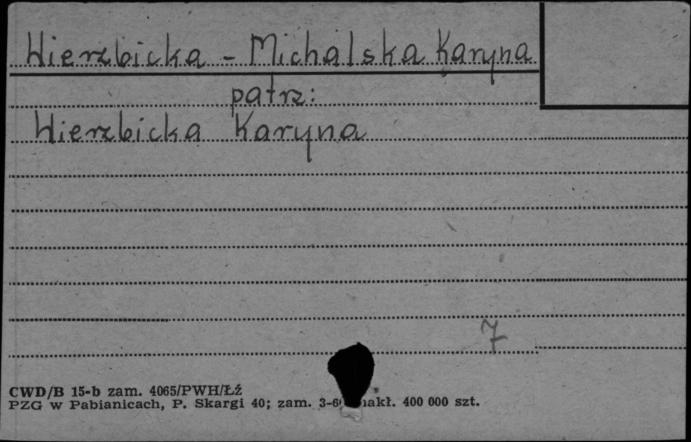 Wierzbicka - Michalska Karyna
patrz:
Wierzbicka Karyna
7
CWD/B 15-b zam. 4065/PWH/ŁŹ
PZG w Pabianicach, P. Skargi 40; zam. nakł. 400 000 szt.